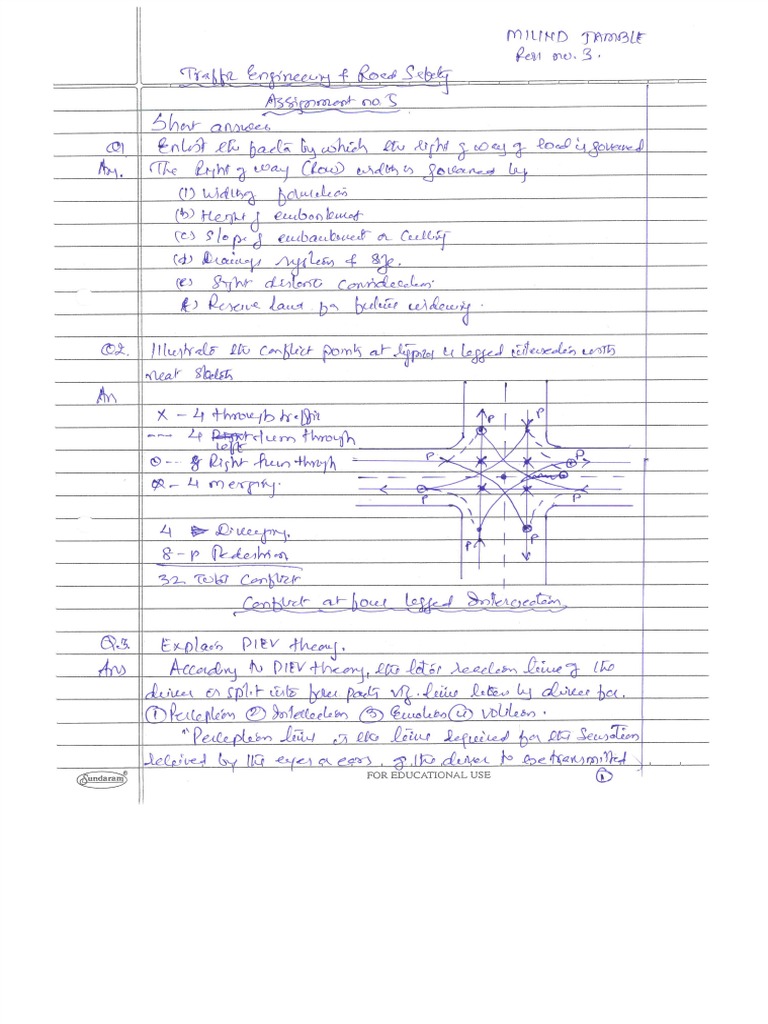 MILIND TAMBLE
no. 3.
Traffic Engineering & Road Safety
Assignment no. 5
Short answers
Q1 Enlist the factor by which the right of way of road is governed
Ans. The Right of way (Row) width is governed by
(1) Width of formation
(b) Height of embankment
(c) Slope of embankment or Cutting
(d) Drainage system & size.
(e) Sight distance consideration.
(f) Reserve land for future widening.
Q2. Illustrate the conflict points at typical 4 legged intersection with
neat sketch
An
x - 4 through traffic
--- 4 Right turn through
left
⊙-- 8 Right turn through
⊗ - 4 merging.
4 Diverging.
8 - P Pedestrian
32 Total Conflict
P P
P P
P P
P P
Conflict at four legged Intersection
Q.3. Explain PIEV theory.
Ans According to PIEV theory, the total reaction time of the
driver is split into four parts viz. time taken by driver for.
① Perception ② Intellection ③ Emotion ④ Volition.
"Perception time is the time required for the Sensation
received by the eyes or ears, of the driver to be transmitted
Sundaram
FOR EDUCATIONAL USE
①